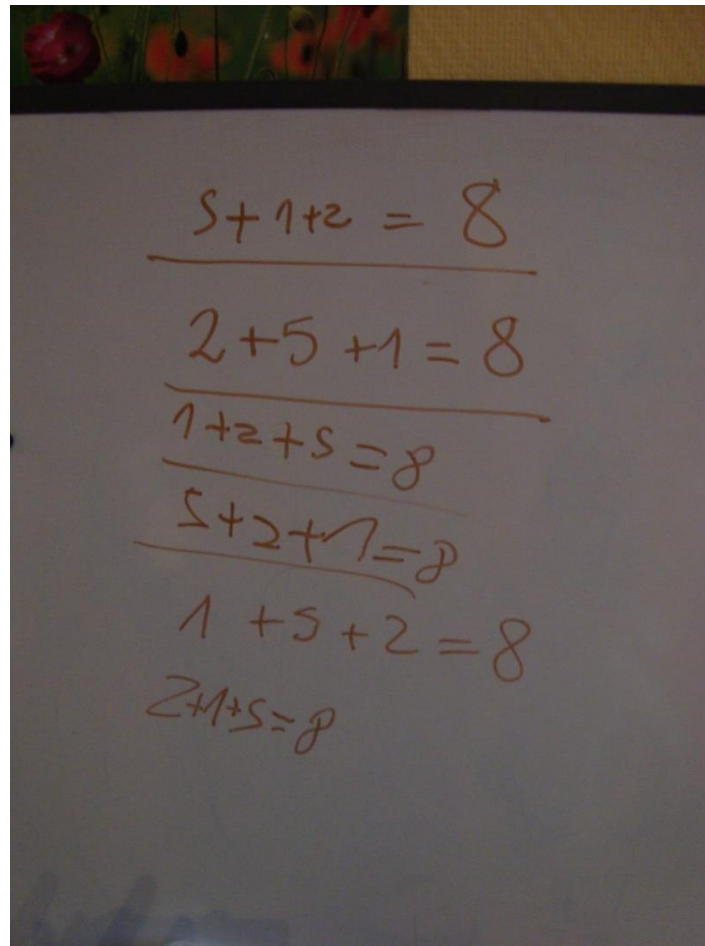 5+1+2 = 8
2+5+1=8
1+2+5=8
5+2+1=8
1+5+2=8
2+1+5=8